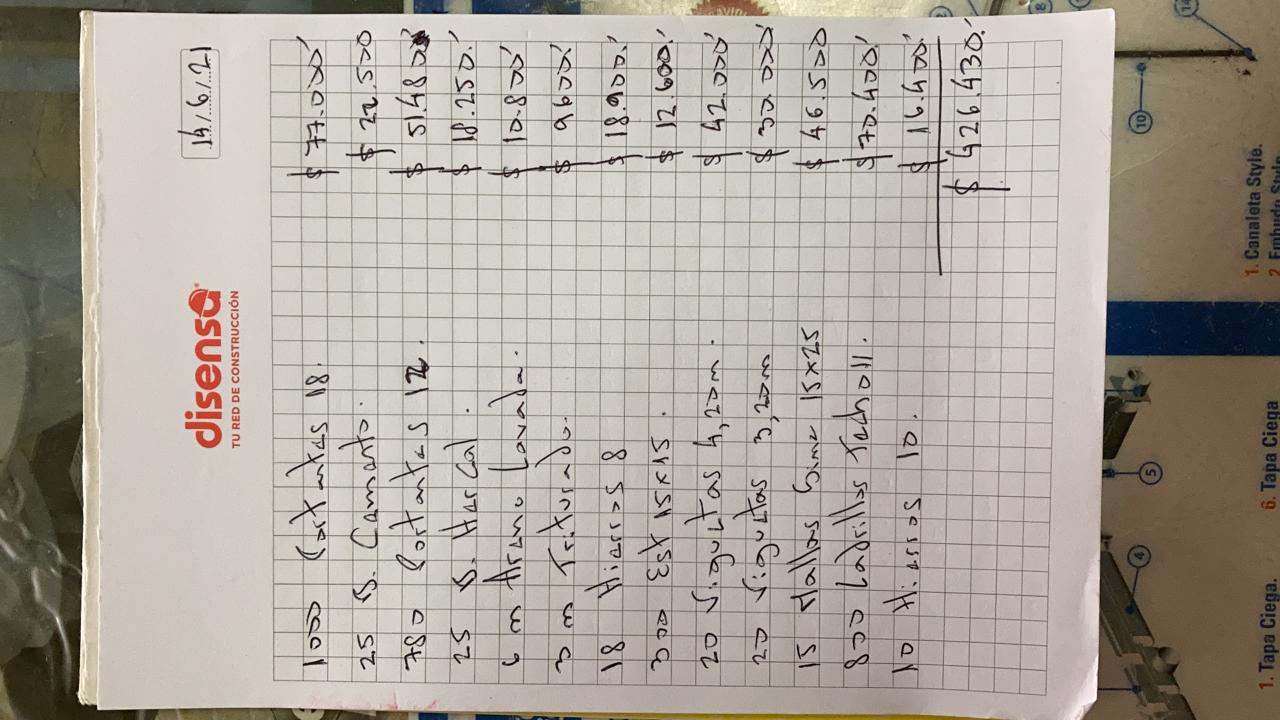 disensa
TU RED DE CONSTRUCCIÓN
14/6/21
1000 Portantes 18. $ 77.000
25 B. Cemento. $ 22.500
780 Portantes 12. $ 51.480
25 B. Hercal. $ 18.250.
6 m Arena Lavada. $ 10.800
3 m Triturado. $ 9600
18 Hierros 8 $ 18.900.
300 Est 15x15. $ 12.600.
20 Viguetas 4,20m. $ 42.000
20 Viguetas 3,20m $ 30.000
15 Mallas Sima 15x25 $ 46.500
800 Ladrillos Techo 11. $ 70.400
10 Hierros 10. $ 16.400
$ 426.430.
4
5
10
8
14
1. Tapa Ciega.
6. Tapa Ciega
1. Canaleta Style.
2. Embudo Style